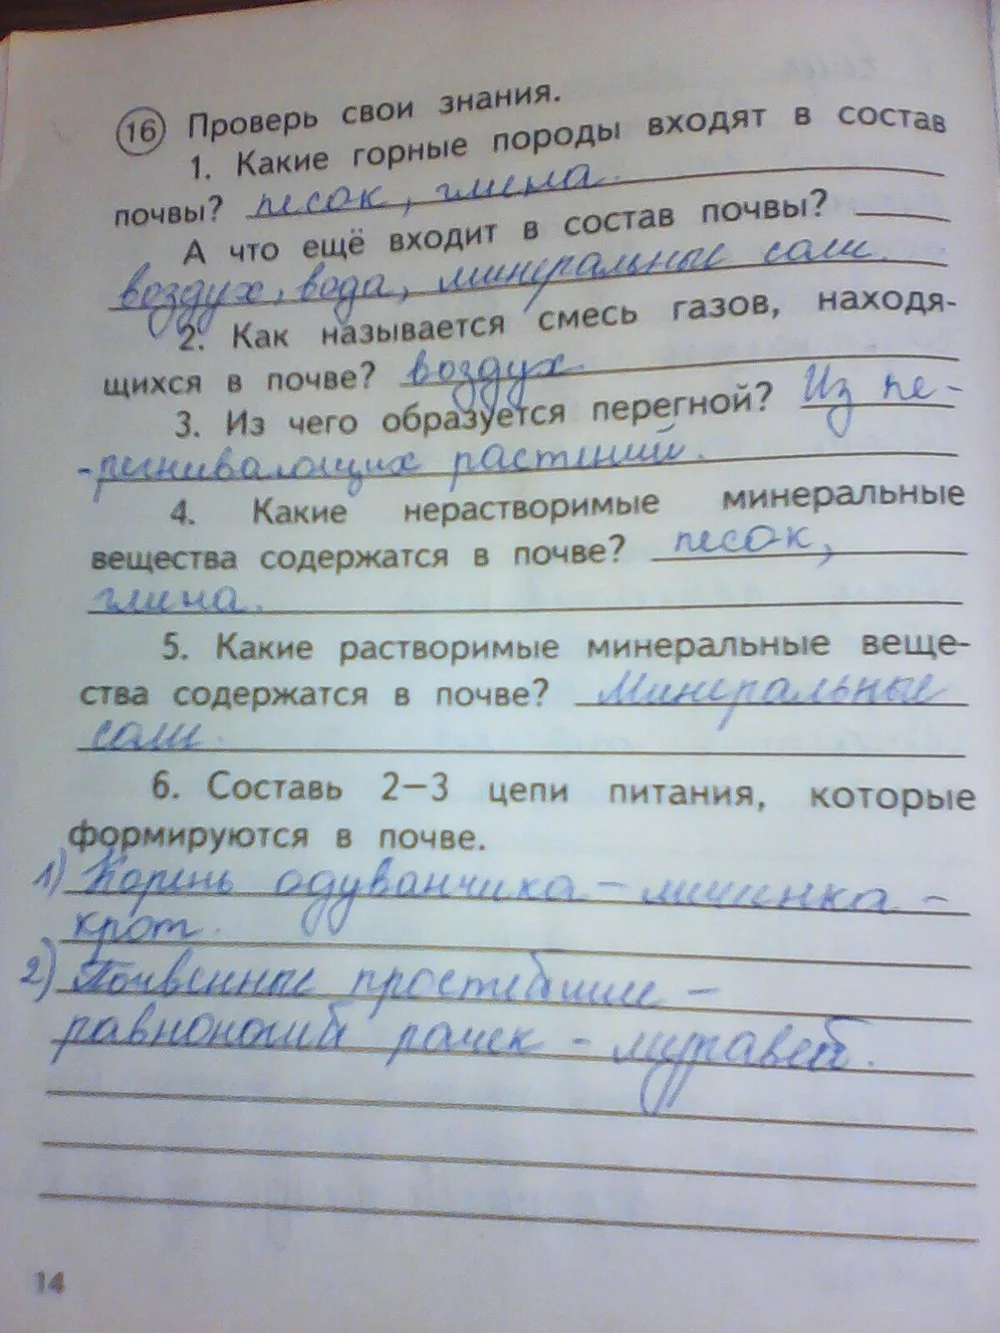 16 Проверь свои знания.
1. Какие горные породы входят в состав
почвы? песок, глина.
А что ещё входит в состав почвы?
воздух, вода, минеральные соли.
2. Как называется смесь газов, находя-
щихся в почве? воздух
3. Из чего образуется перегной? Из пе-
-регнивающих растений.
4. Какие нерастворимые минеральные
вещества содержатся в почве? песок,
глина.
5. Какие растворимые минеральные веще-
ства содержатся в почве? Минеральные
соли.
6. Составь 2–3 цепи питания, которые
формируются в почве.
1) Корень одуванчика – личинка –
крот.
2) Почвенные простейшие –
равноногий рачек – муравей.
14